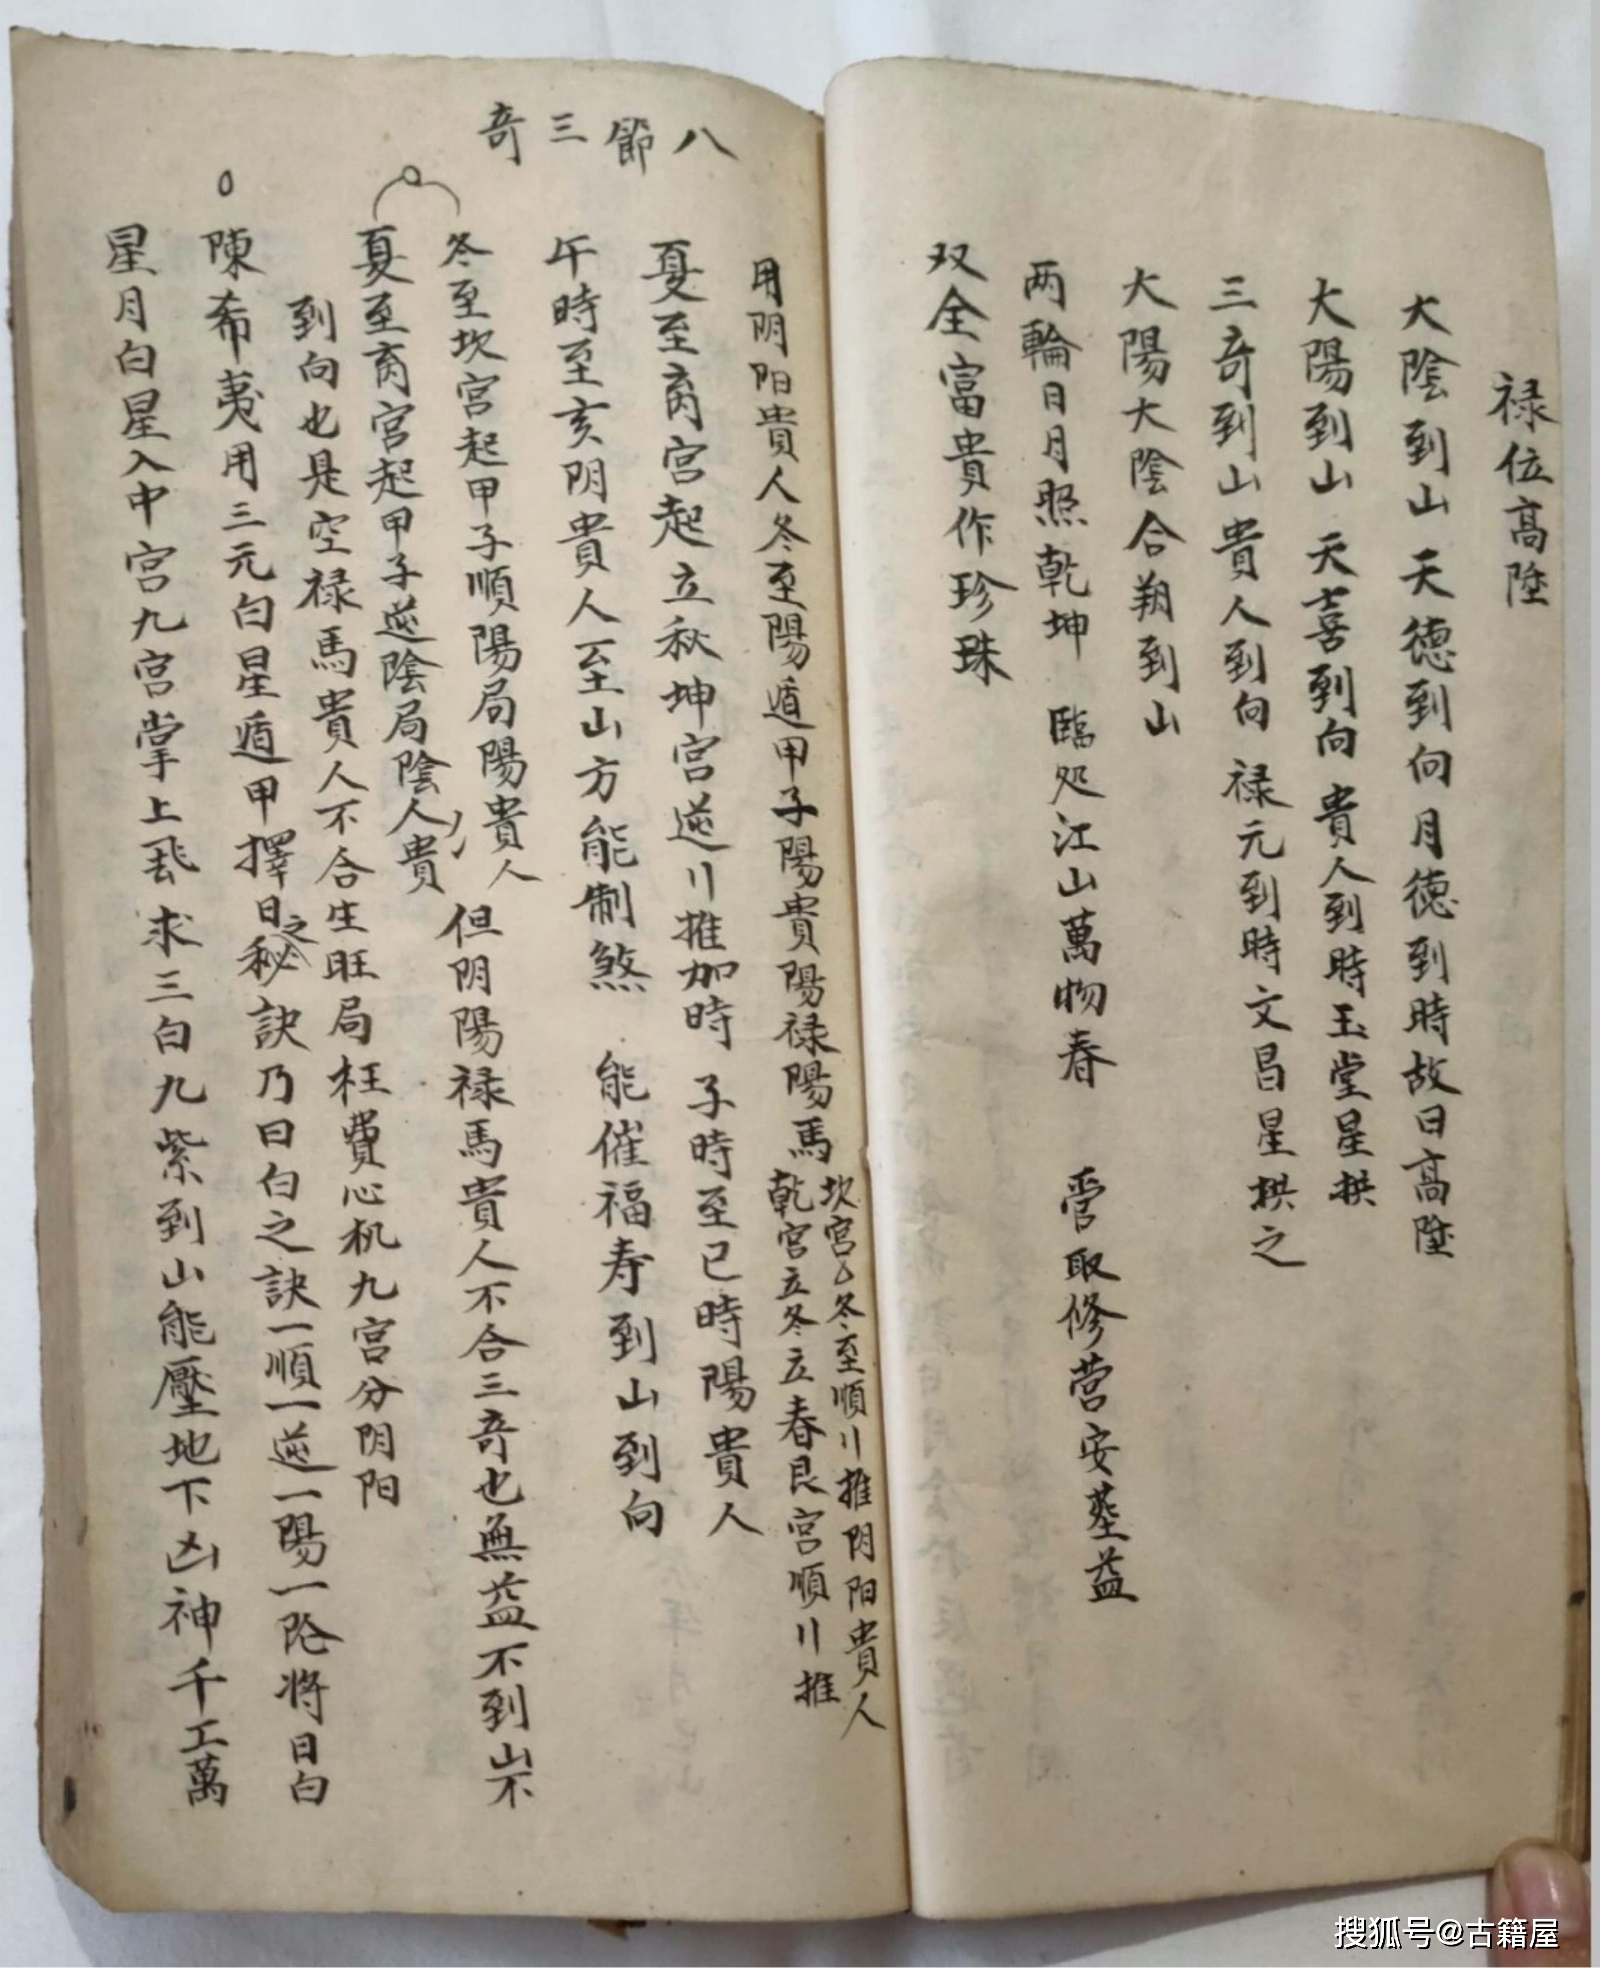 禄位高陞
大陰到山 天德到向 月德到時故曰高陞
大陽到山 天喜到向 貴人到時玉堂星拱
三奇到山貴人到向 禄元到時文昌星拱之
大陽大陰合朔到山
两輪日月照乾坤 臨処江山萬物春 管取修营安墓益
双全富貴作珍珠
八節三奇
用阴阳貴人冬至陽遁甲子陽貴陽禄陽馬
坎宫冬至順川推阴阳貴人
乾宫立冬立春艮宫順川推
夏至离宫起立秋坤宫逆川推加時 子時至巳時陽貴人
午時至亥阴貴人至山方能制煞 能催福寿到山到向
冬至坎宫起甲子順陽局陽貴人
夏至离宫起甲子逆陰局陰人貴
但阴陽禄馬貴人不合三奇也無益不到山不
到向也是空禄馬貴人不合生旺局枉費心机九宫分阴阳
陳希夷用三元白星遁甲擇日之秘訣乃曰白之訣一順一逆一陽一阴将日白
星月白星入中宫九宫掌上飛求三白九紫到山能壓地下凶神千工萬
搜狐号@古籍屋